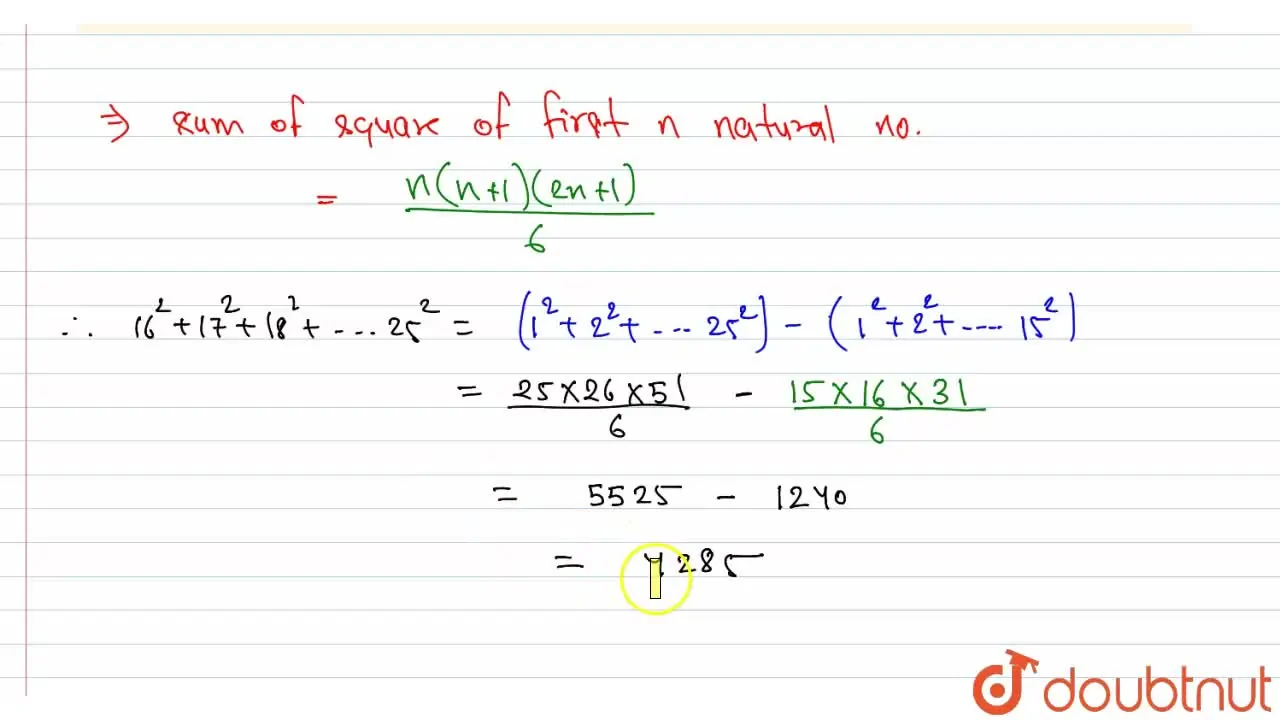 ⇒ sum of square of first n natural no.
= n(n+1)(2n+1)/6
∴ 16² + 17² + 18² + --.. 25² = (1² + 2² + --.. 25²) - (1² + 2² + --... 15²)
= 25×26×51/6 - 15×16×31/6
= 5525 - 1240
= 4285
doubtnut